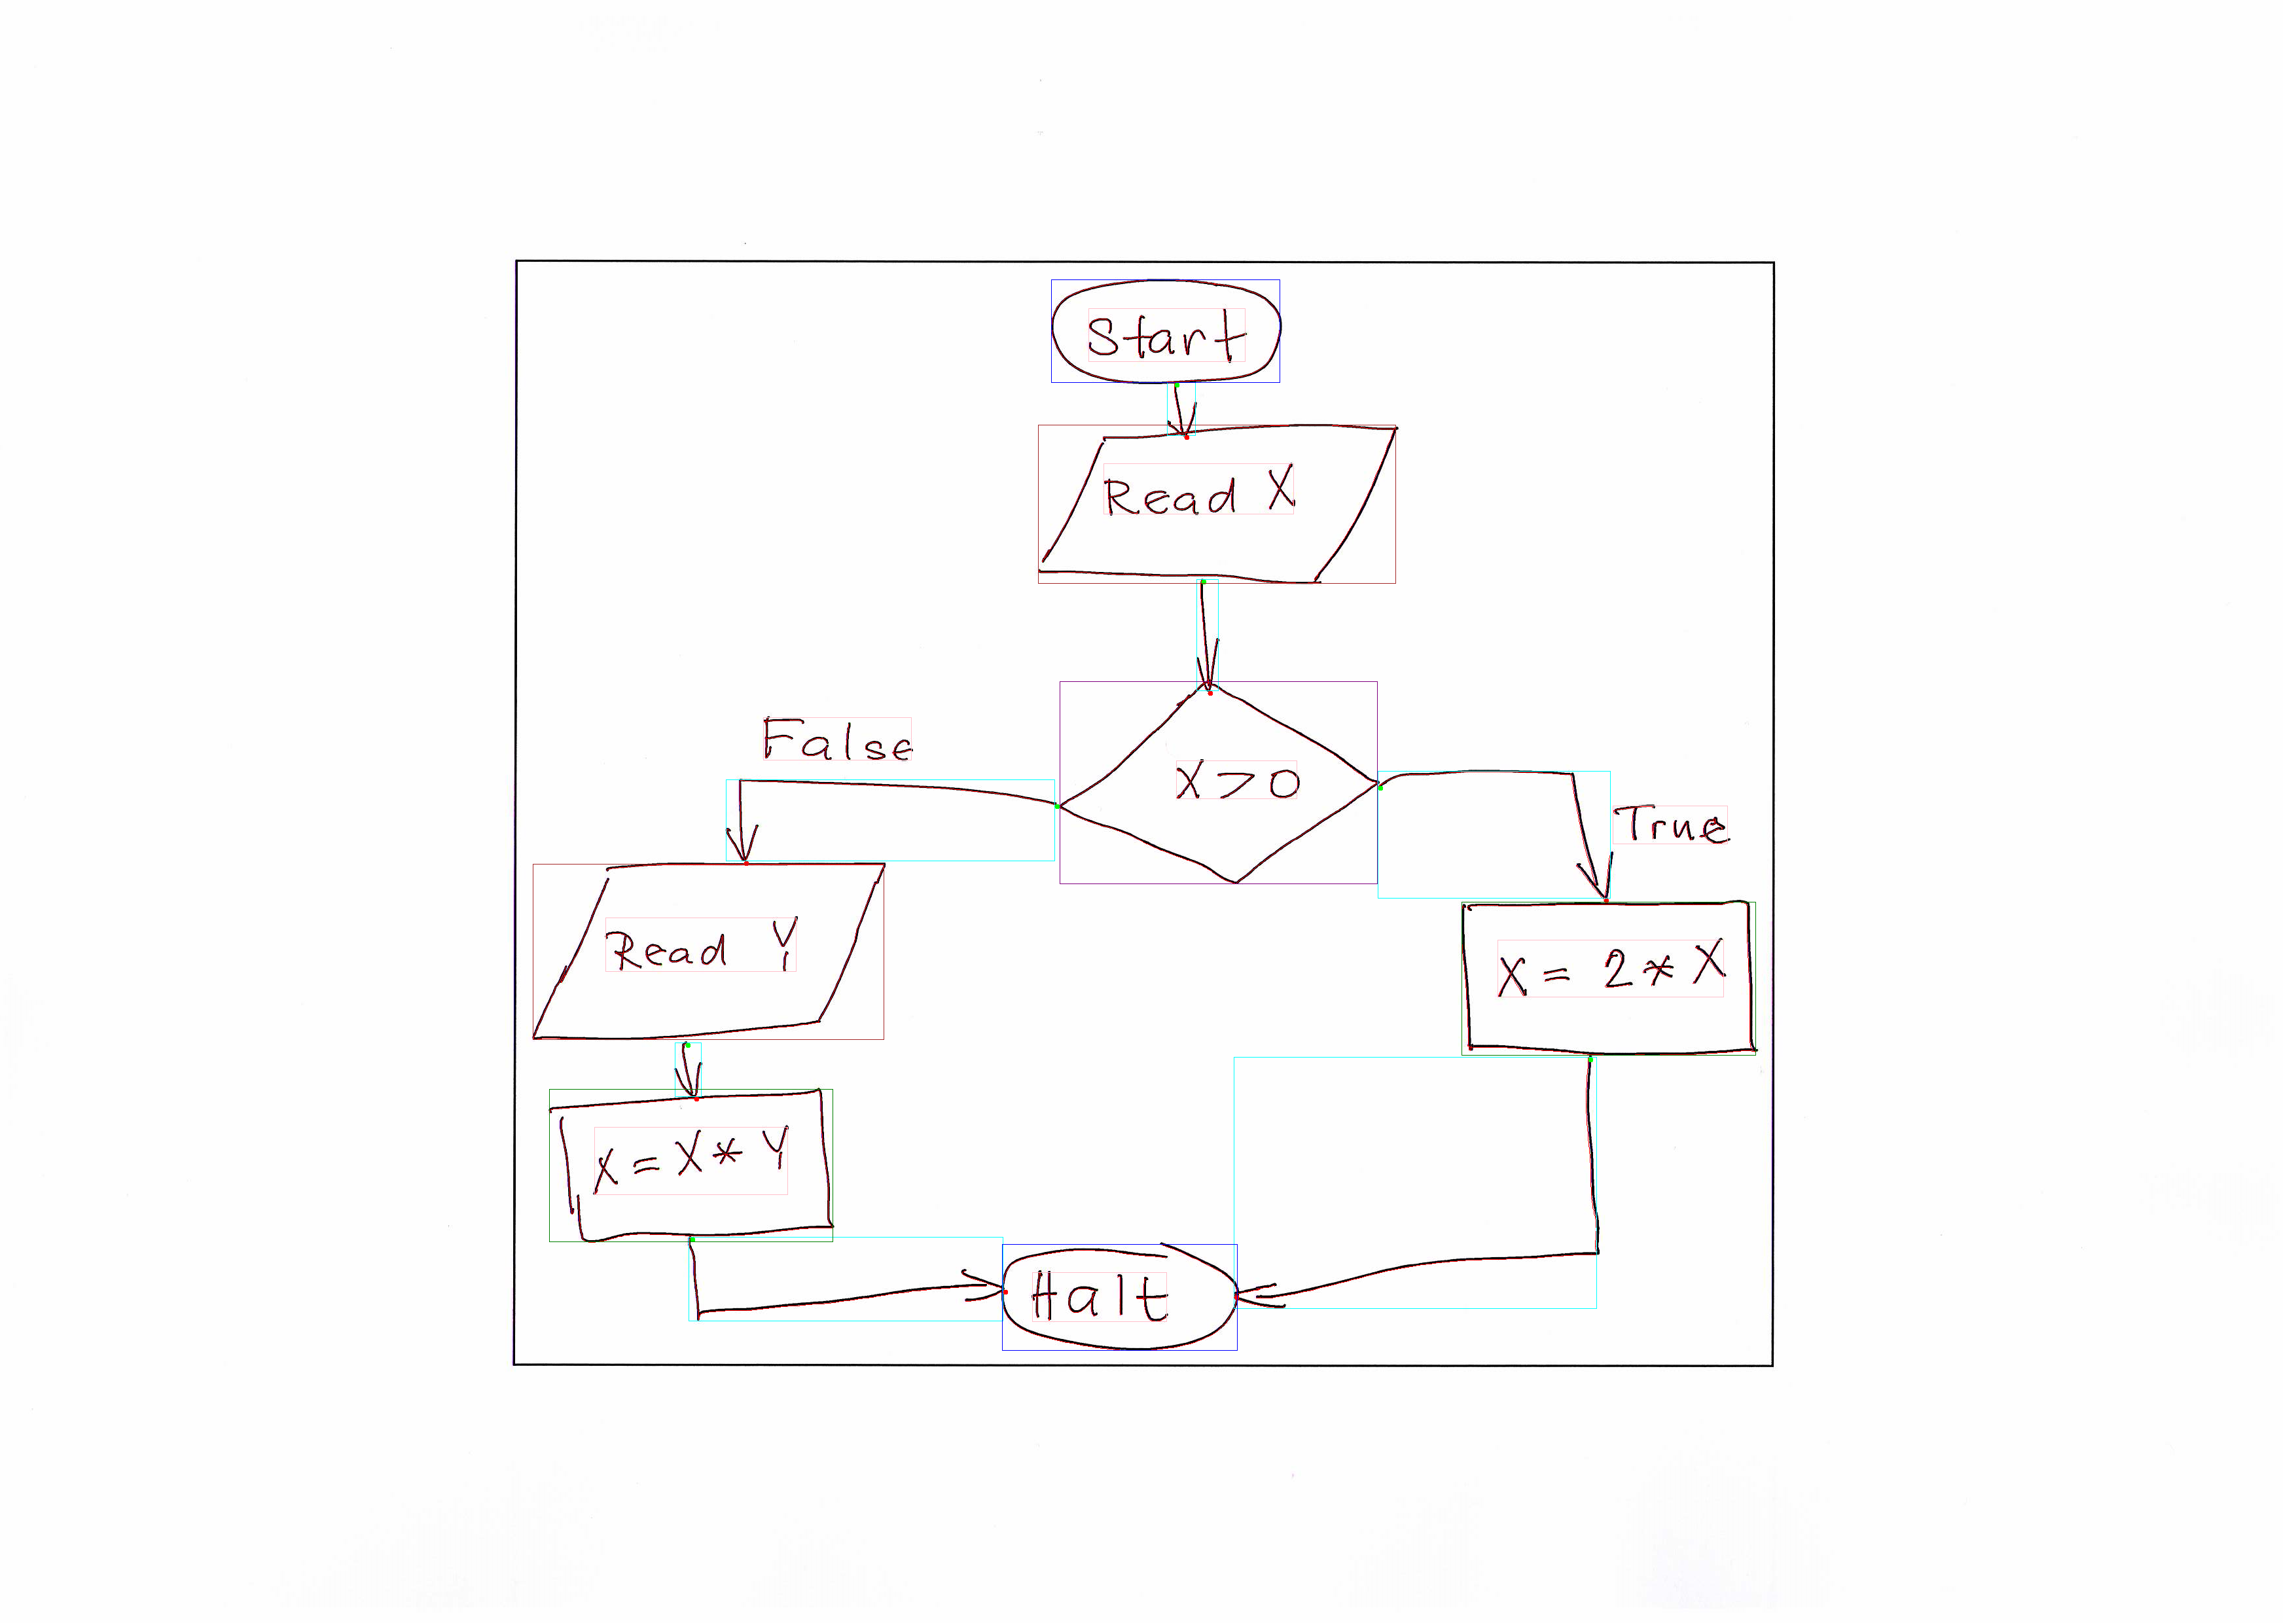 Start
Read X
False
X > 0
True
Read Y
X = 2 * X
X = X * Y
Halt